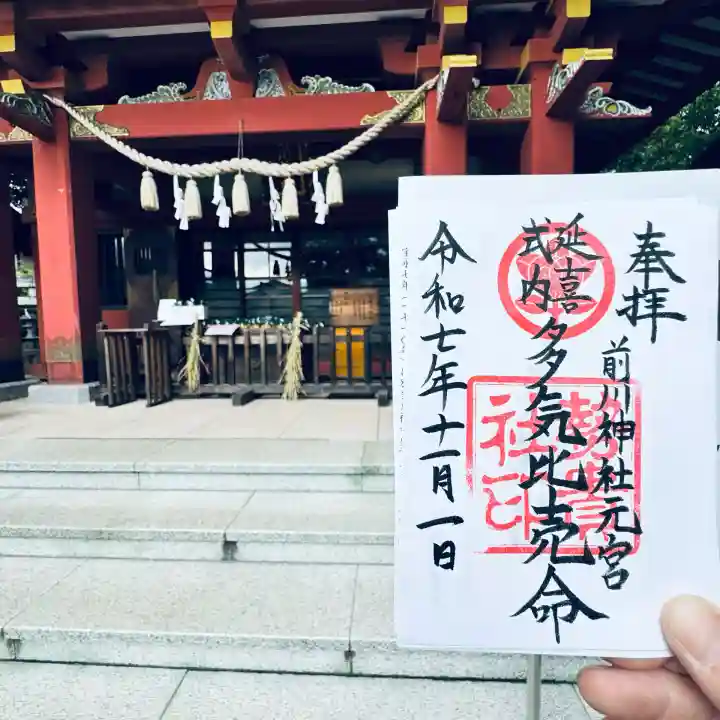 奉拝
前川神社元宮
延喜
式内
多気比売命
令和七年十一月一日